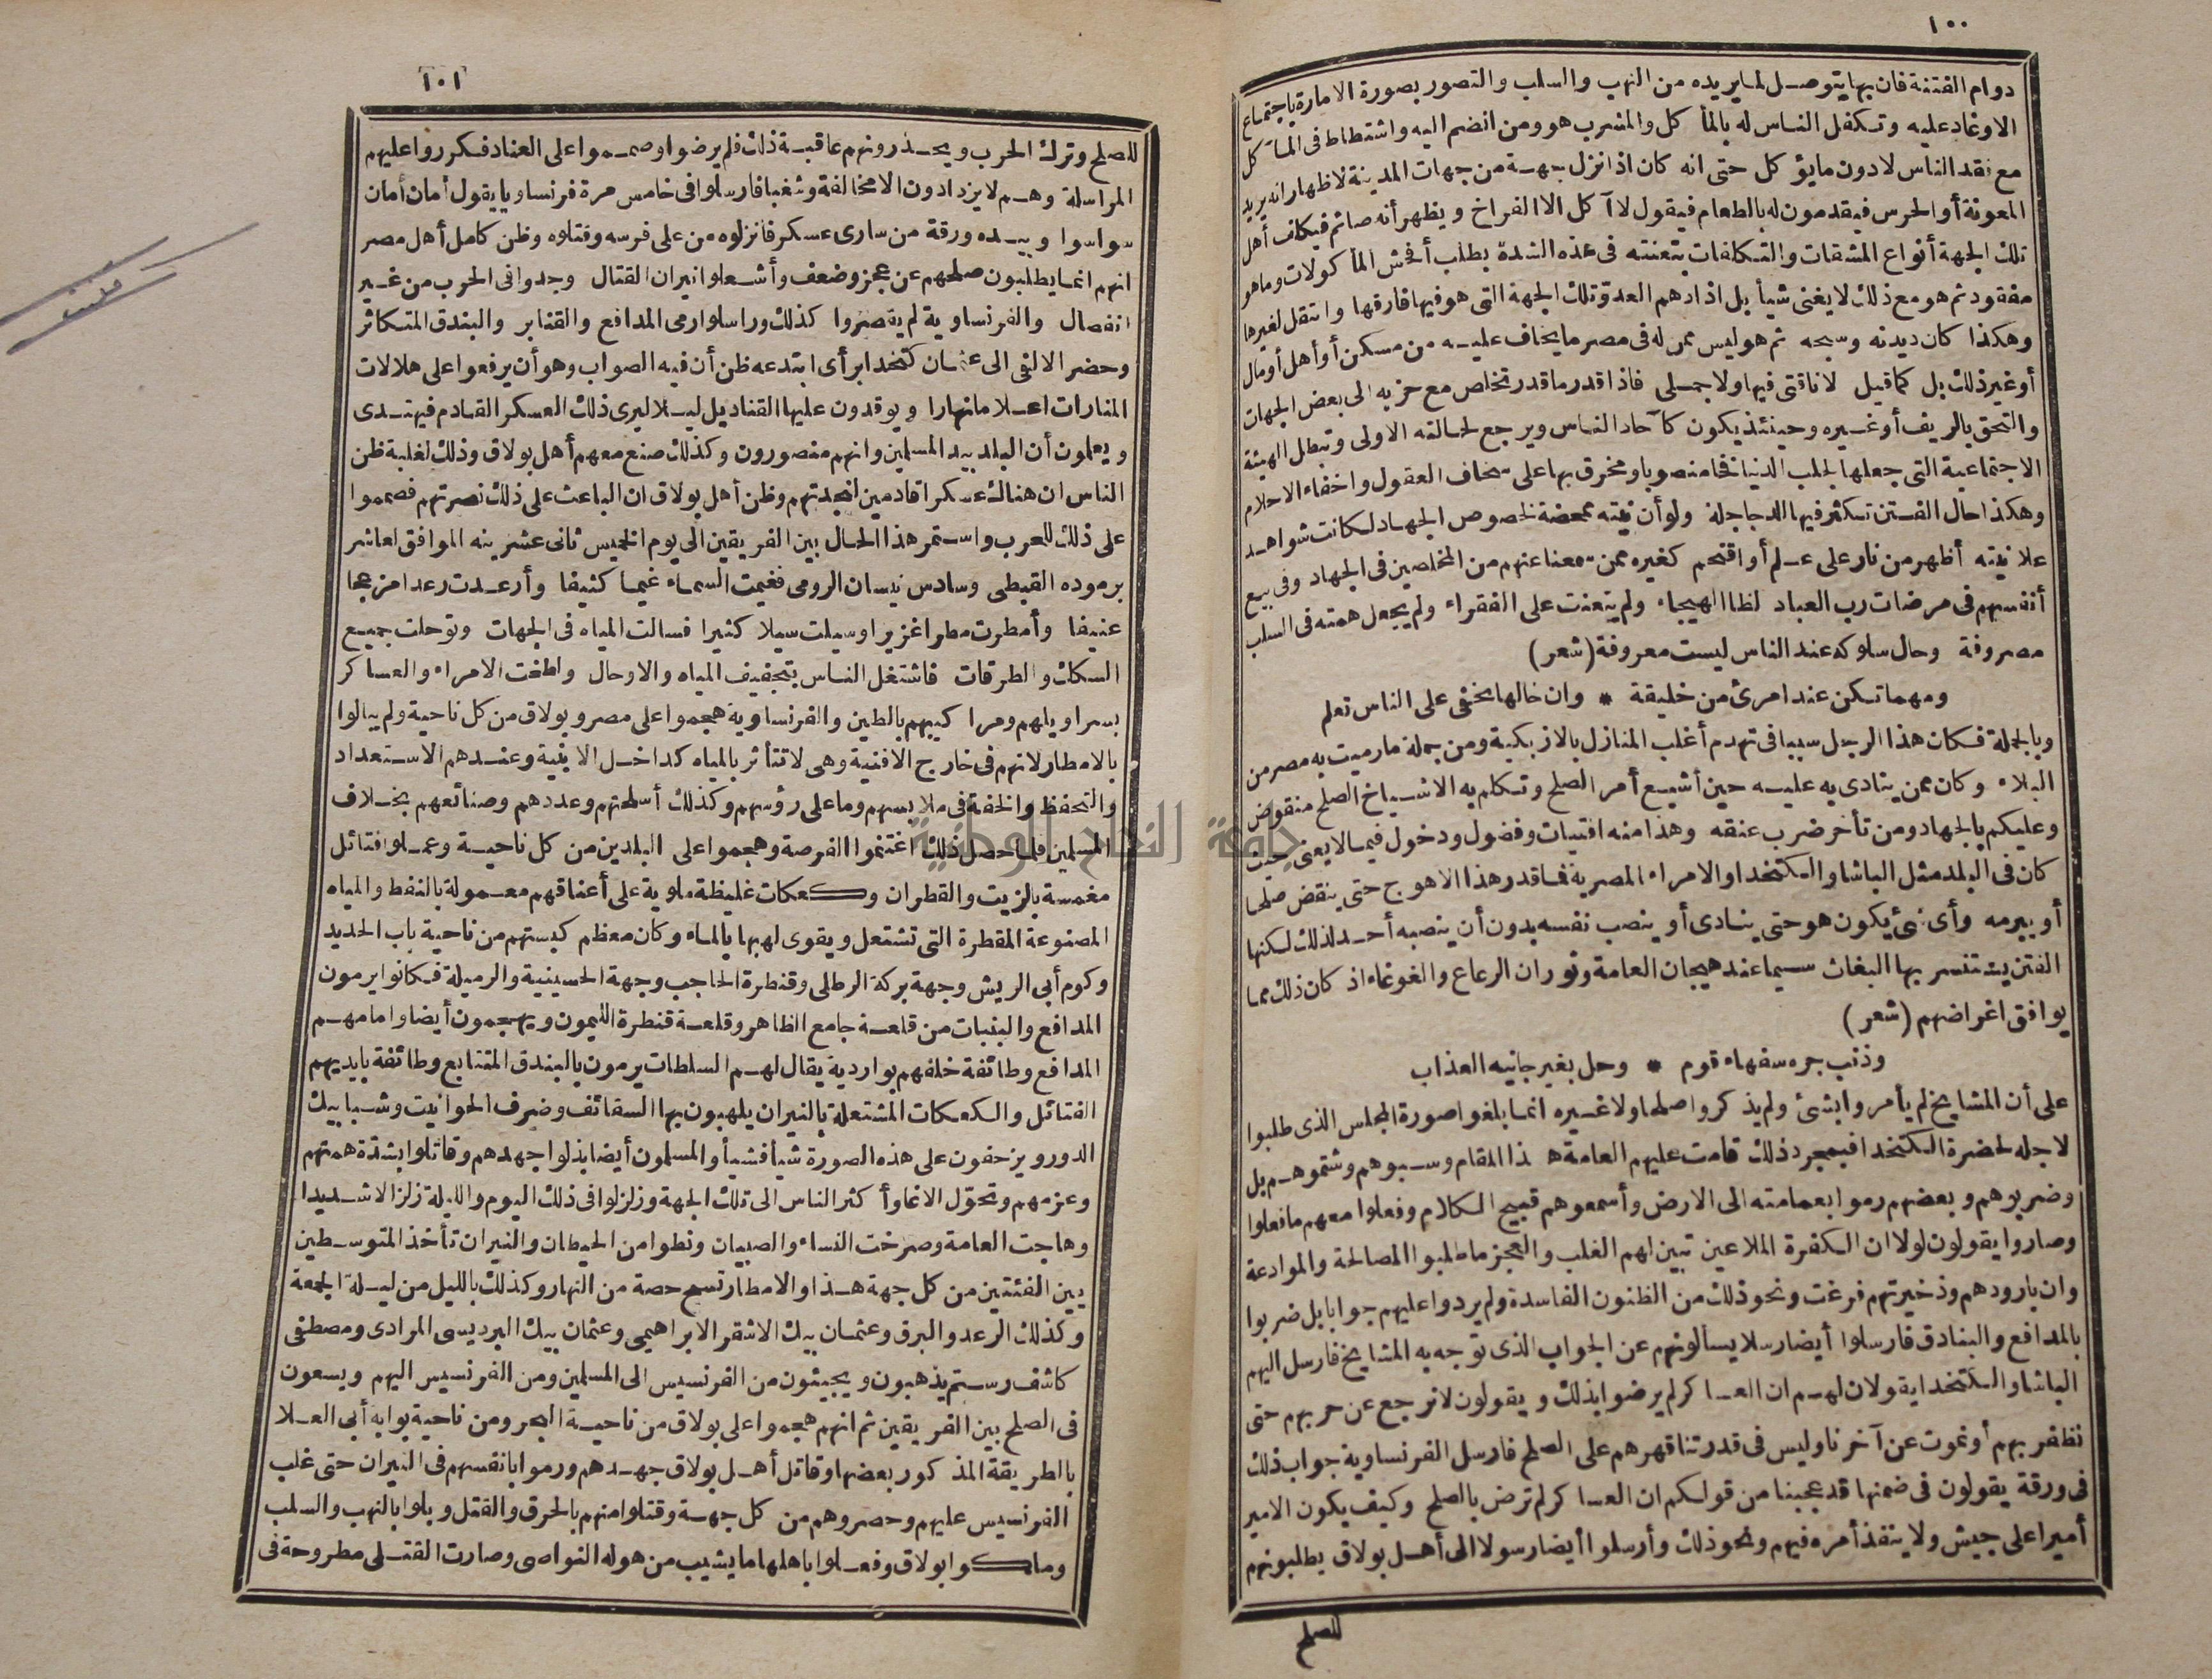 ١٠٠
دوام الفتنة فان بها يتوصل لما يريده من النهب والسلب والتصور بصورة الامارة باجتماع
الاوغاد عليه وتكفل الناس له بالمأكل والمشرب هو ومن انضم اليه واشتطاط فى المآكل
مع فقد الناس لادون مايؤكل حتى انه كان اذا نزل جهة من جهات المدينة لاظهار انه يريد
المعونة أو الحرس فيقدمون له بالطعام فيقول لا آكل الا الفراخ ويظهر أنه صائم فيكلف أهل
تلك الجهة أنواع المشقات والتكلفات بتعنته فى هذه الشدة بطلب أفحش المأكولات وما هو
مفقود ثم هو مع ذلك لا يغنى شيأ بل اذا دهم العدوّ تلك الجهة التى هو فيها فارقها وانتقل لغيرها
وهكذا كان ديدنه وسجحه ثم هو ليس ممن له فى مصر ما يخاف عليه من مسكن أو أهل أو مال
أو غير ذلك بل كما قيل لا ناقتى فيها ولا جملى فاذا قدر ما قدر تخلص مع حزبه الى بعض الجهات
والتحق بالريف أو غيره وحينئذ يكون كآحاد الناس ويرجع لحالته الاولى وتبطل الهيئة
الاجتماعية التى جعلها لجلب الدنيا فخا منصوبا ومخرق بها على سخاف العقول واخفاء الاحلام
وهكذا حال الفتن تكثر فيها الدجاجلة ولو أن نيته ممحضة لخصوص الجهاد لكانت شواهد
علانيته أظهر من نار على علم أو اقتحم كغيره ممن سمعنا عنهم من المخلصين فى الجهاد وفى بيع
أنفسهم فى مرضات رب العباد لظا الهيجاء ولم يتعنت على الفقراء ولم يجعل همته فى السلب
مصروفة وحال سلوكه عند الناس ليست معروفة (شعر)
ومهما تكن عند امرئ من خليقة * وان خالها تخفى على الناس تعلم
وبالجملة فكان هذا الرجل سببا فى تهدم أغلب المنازل بالازبكية ومن جملة ما رميت به مصر من
البلاء وكان ممن ينادى به عليه حين أشيع أمر الصلح وتكلم به الاشياخ الصلح منقوض
وعليكم بالجهاد ومن تأخر ضرب عنقه وهذا منه افتيات وفضول ودخول فيما لا يعنى حيث
كان فى البلد مثل الباشا والكتخدا والامراء المصرية فما قدر هذا الاهوج حتى ينقض صلحا
أو يبرمه وأى شئ يكون هو حتى ينادى أو ينصب نفسه بدون أن ينصبه أحد لذلك لكنها
الفتن يستنسر بها البغاث سيما عند هيجان العامة وثوران الرعاع والغوغاء اذ كان ذلك مما
يوافق اغراضهم (شعر)
وذنب جره سفهاء قوم * وحل بغير جانيه العذاب
على أن المشايخ لم يأمروا بشئ ولم يذكروا صلحا ولا غيره انما بلغوا صورة المجلس الذى طلبوا
لاجله لحضرة الكتخدا فبمجرد ذلك قامت عليهم العامة هذا المقام وسبوهم وشتموهم بل
وضربوهم وبعضهم رموا بعمامته الى الارض وأسمعوهم قبيح الكلام وفعلوا معهم ما فعلوا
وصاروا يقولون لولا ان الكفرة الملاعين تبين لهم الغلب والعجز ما طلبوا المصالحة والموادعة
وان بارودهم وذخيرتهم فرغت ونحو ذلك من الظنون الفاسدة ولم يردوا عليهم جوابا بل ضربوا
بالمدافع والبنادق فارسلوا أيضا رسلا يسألونهم عن الجواب الذى توجه به المشايخ فارسل اليهم
الباشا والكتخدا يقولان لهم ان العساكر لم يرضوا بذلك ويقولون لا نرجع عن حربهم حتى
نظفر بهم أو نموت عن آخرنا وليس فى قدرتنا قهرهم على الصلح فارسل الفرنساوية جواب ذلك
فى ورقة يقولون فى ضمنها قد عجبنا من قولكم ان العساكر لم ترض بالصلح وكيف يكون الامير
أميرا على جيش ولا ينفذ أمره فيهم ونحو ذلك وأرسلوا أيضا رسولا الى أهل بولاق يطلبونهم
للصلح
١٠١
للصلح وترك الحرب ويحذرونهم عاقبة ذلك فلم يرضوا وصمموا على العناد فكرروا عليهم
المراسلة وهم لا يزدادون الا مخالفة وشغبا فارسلوا فى خامس مرة فرنساويا يقول أمان أمان
سواسوا وبيده ورقة من سارى عسكر فانزلوه من على فرسه وقتلوه وظن كامل أهل مصر
انهم انما يطلبون صلحهم عن عجز وضعف وأشعلوا نيران القتال وجدوا فى الحرب من غير
انفصال والفرنساوية لم يقصروا كذلك وراسلوا رمى المدافع والقنابر والبندق المتكاثر
وحضر الالفى الى عثمان كتخدا برأى ابتدعه ظن أن فيه الصواب وهو أن يرفعوا على هلالات
المنارات اعلاما نهارا ويوقدون عليها القناديل ليلا ليرى ذلك العسكر القادم فيهتدى
ويعلمون أن البلد بيد المسلمين وانهم منصورون وكذلك صنع معهم أهل بولاق وذلك لغلبة ظن
الناس ان هناك عسكرا قادمين لنجدتهم وظن أهل بولاق ان الباعث على ذلك نصرتهم فصمموا
على ذلك للحرب واستمر هذا الحال بين الفريقين الى يوم الخميس ثانى عشرينه الموافق لعاشر
برموده القبطى وسادس نيسان الرومى فغيمت السماء غيما كثيفا وأرعدت رعدا مزعجا
عنيفا وأمطرت مطرا غزيرا وسيلت سيلا كثيرا فسالت المياه فى الجهات وتوحلت جميع
السكك والطرقات فاشتغل الناس بتجفيف المياه والاوحال ولطخت الامراء والعساكر
بسراويلهم ومراكيبهم بالطين والفرنساوية هجموا على مصر وبولاق من كل ناحية ولم يبالوا
بالامطار لانهم فى خارج الافنية وهى لا تتأثر بالمياه كداخل الابنية وعندهم الاستعداد
والتحفظ والخفة فى ملابسهم وما على رؤسهم وكذلك أسلحتهم وعددهم وصنائعهم بخلاف
المسلمين فلما حصل ذلك اغتنموا الفرصة وهجموا على البلدين من كل ناحية وعملوا فتائل
مغمسة بالزيت والقطران وكعكات غليظة ملوية على أعناقهم معمولة بالنفط والمياه
المصنوعة المقطرة التى تشتعل ويقوى لهبها بالماء وكان معظم كبستهم من ناحية باب الحديد
وكوم أبى الريش وجهة بركة الرطلى وقنطرة الحاجب وجهة الحسينية والرميلة فكانوا يرمون
المدافع والبنبات من قلعة جامع الظاهر وقلعة قنطرة الليمون ويهجمون أيضا وامامهم
المدافع وطائفة خلفهم بواردية يقال لهم السلطات يرمون بالبندق المتتابع وطائفة بايديهم
الفتائل والكعكات المشتعلة بالنيران يلهبون بها السقائف وضرف الحوانيت وشبابيك
الدور ويزحفون على هذه الصورة شيأ فشيأ والمسلمون أيضا بذلوا جهدهم وقاتلوا بشدّة همتهم
وعزمهم وتحوّل الاغا وأكثر الناس الى تلك الجهة وزلزلوا فى ذلك اليوم والليلة زلزالا شديدا
وهاجت العامة وصرخت النساء والصبيان ونطوا من الحيطان والنيران تأخذ المتوسطين
بين الفئتين من كل جهة هذا والامطار تسح حصة من النهار وكذلك بالليل من ليلة الجمعة
وكذلك الرعد والبرق وعثمان بيك الاشقر الابراهيمى وعثمان بيك البرديسى المرادى ومصطفى
كاشف رستم يذهبون ويجيئون من الفرنسيس الى المسلمين ومن الفرنسيس اليهم ويسعون
فى الصلح بين الفريقين ثم انهم هجموا على بولاق من ناحية البحر ومن ناحية بوابة أبى العلا
بالطريقة المذكور بعضها وقاتل أهل بولاق جهدهم ورموا بانفسهم فى النيران حتى غلب
الفرنسيس عليهم وحصروهم من كل جهة وقتلوا منهم بالحرق والقتل وبلوا بالنهب والسلب
وملكوا بولاق وفعلوا باهلها ما يشيب من هوله النواصى وصارت القتلى مطروحة فى
جامعة النجاح الوطنية